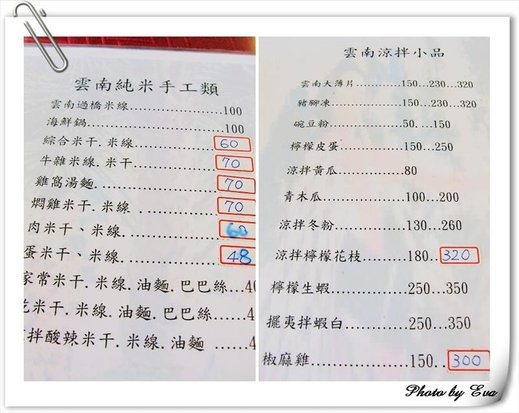 雲南純米手工類
雲南過橋米線......100
海鮮鍋......100
綜合米干.米線......60
牛雜米線.米干......70
雞窩湯麵......70
燜雞米干.米線......70
肉米干、米線......60
蛋米干、米線......48
家常米干.米線.油麵.巴巴絲...4
米干.米線.油麵.巴巴絲......4
拌酸辣米干.米線.油麵......4
雲南涼拌小品
雲南大薄片......150...230...320
豬腳凍......150...230...320
碗豆粉......50...150
檸檬皮蛋......150...250
涼拌黃瓜......80
青木瓜......100...200
涼拌冬粉......130...260
涼拌檸檬花枝......180..320
檸檬生蝦......250...350
擺夷拌蝦白......250...350
椒麻雞......150..300
Photo by Eva